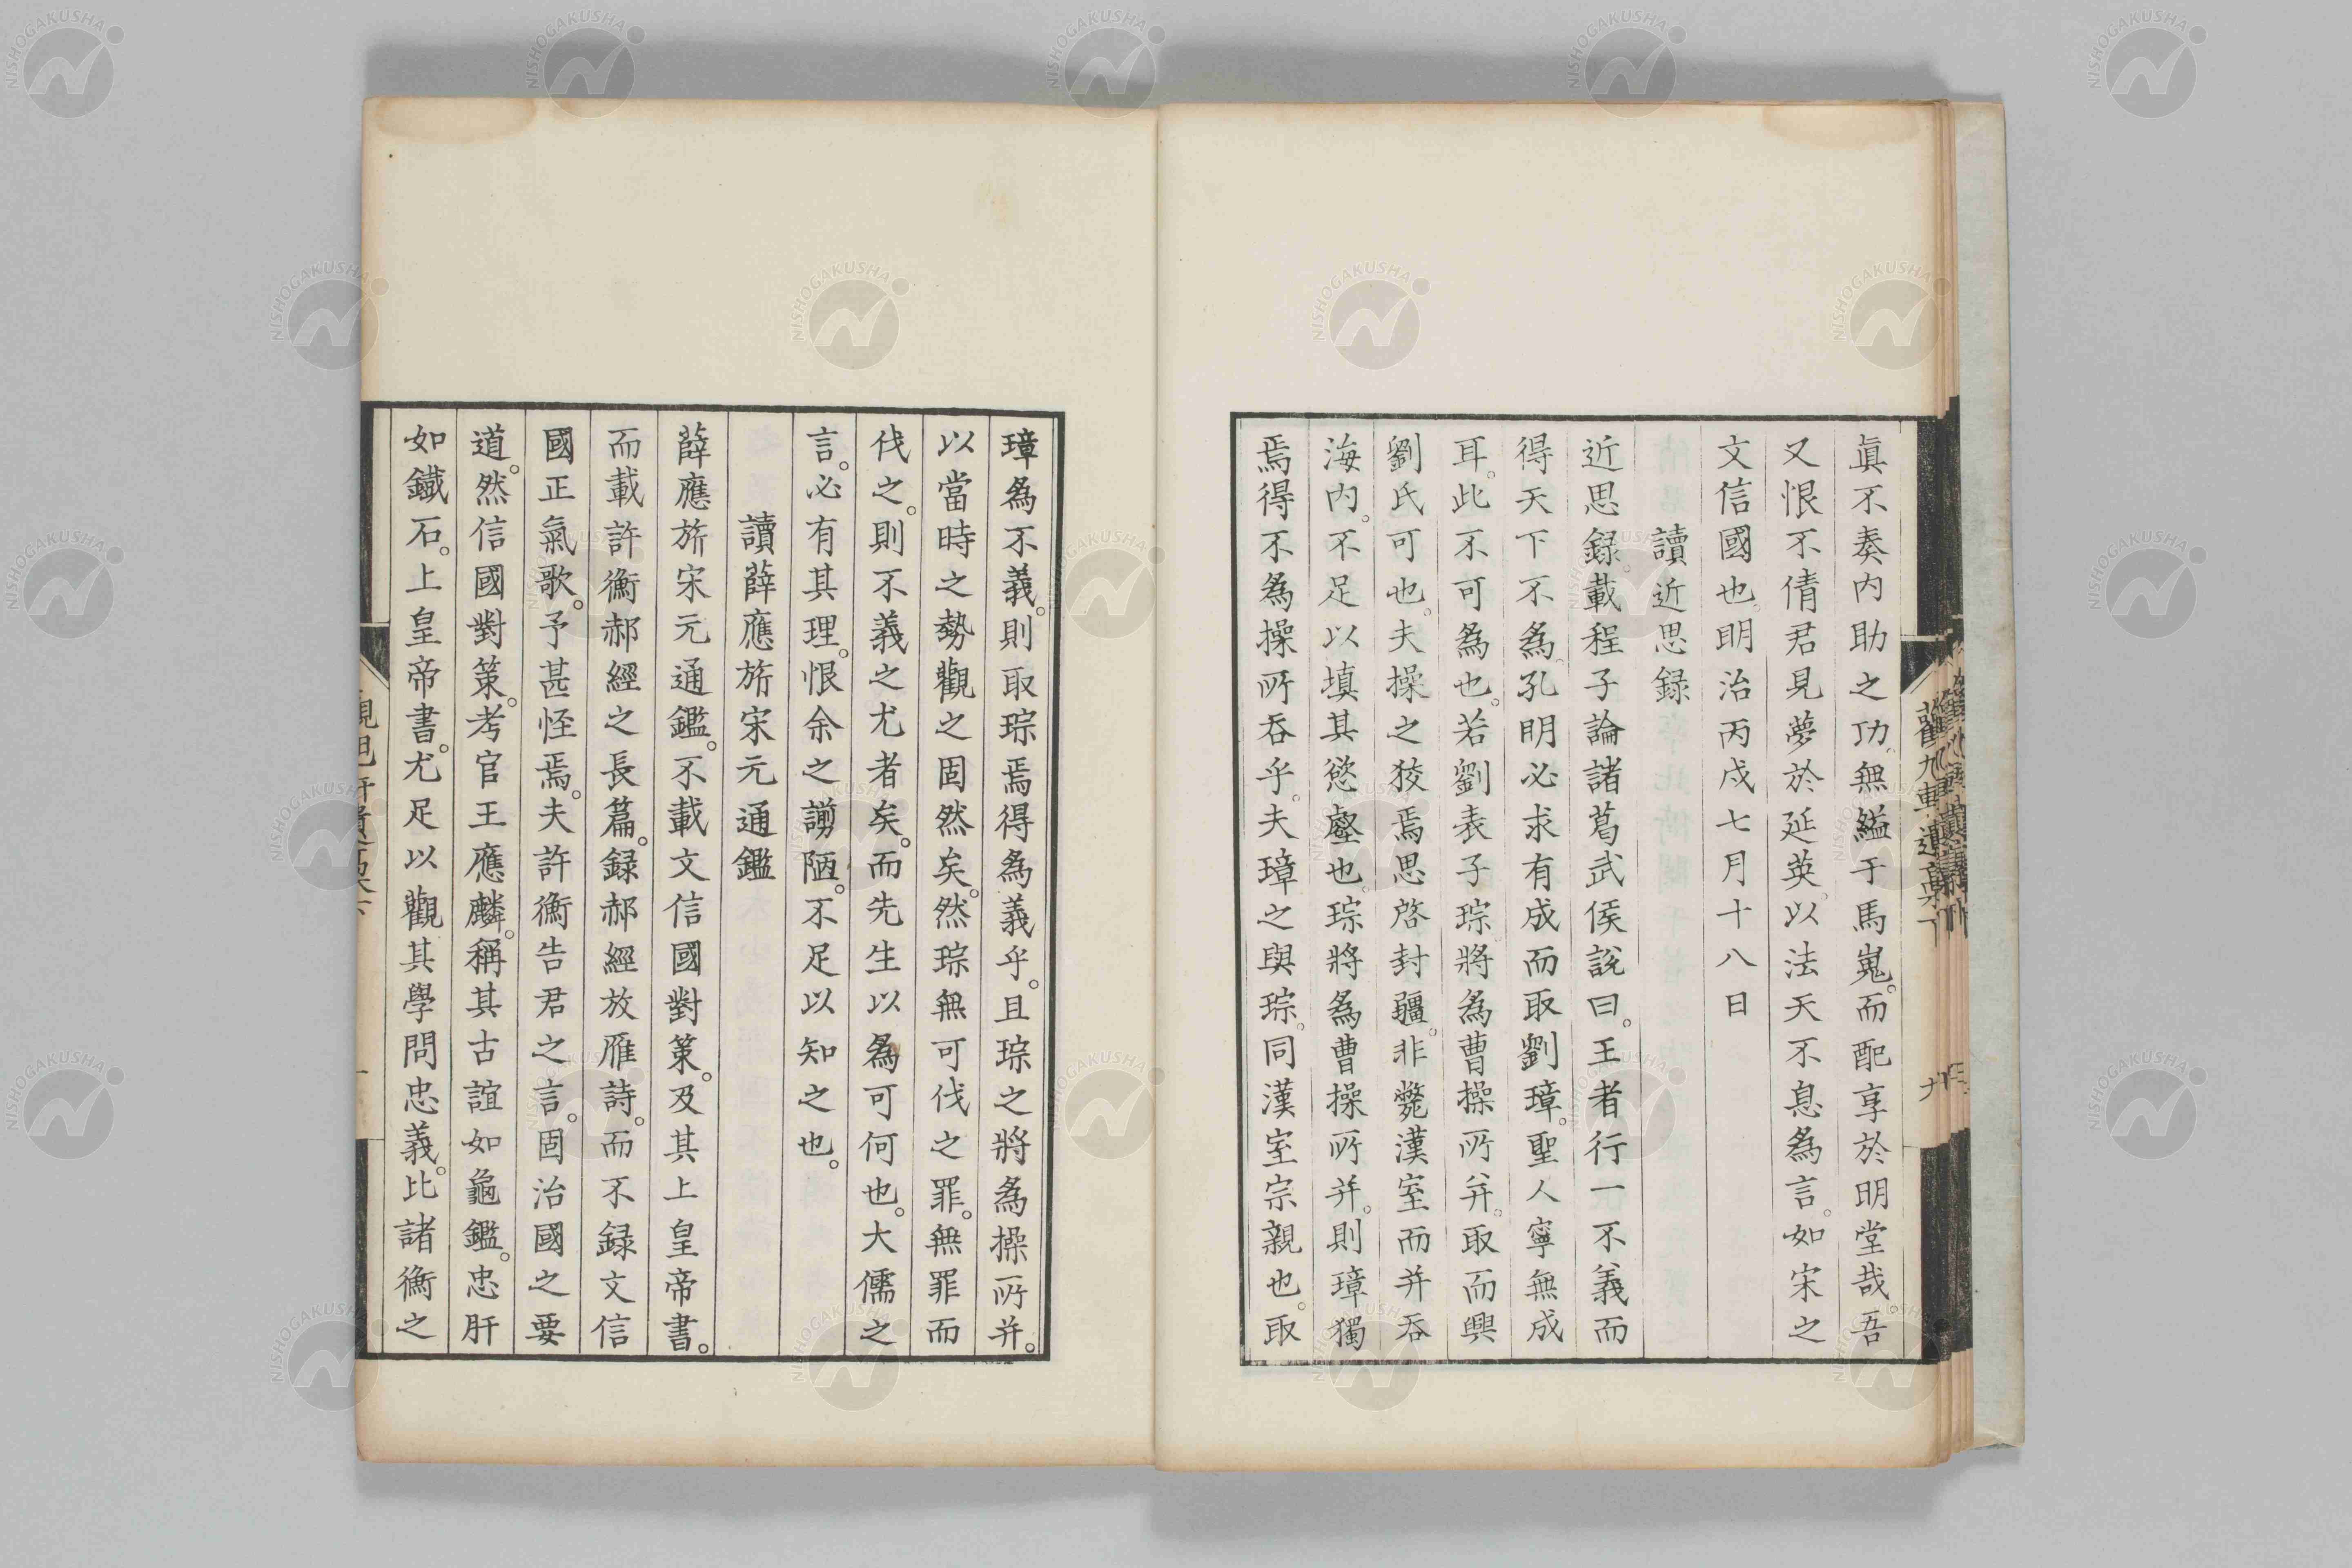 眞不奏内助之功。無縊于馬嵬。而配享於明堂哉。吾
又恨不倩君見夢於延英。以法天不息為言。如宋之
文信國也。明治丙戌七月十八日
讀近思録
近思録。載程子論諸葛武侯説曰。王者行一不義而
得天下不為。孔明必求有成而取劉璋。聖人寧無成
耳。此不可為也。若劉表子琮。將為曹操所并。取而興
劉氏可也。夫操之狡焉思啓封疆。非斃漢室而并吞
海内。不足以填其慾壑也。琮將為曹操所并。則璋獨
焉得不為操所吞乎。夫璋之與琮。同漢室宗親也。取
璋為不義。則取琮焉得為義乎。且琮之將為操所并。
以當時之勢觀之固然矣。然琮無可伐之罪。無罪而
伐之。則不義之尤者矣。而先生以為可何也。大儒之
言。必有其理。恨余之謭陋。不足以知之也。
讀薛應旂宋元通鑑
薛應旂宋元通鑑。不載文信國對策。及其上皇帝書。
而載許衡郝經之長篇。録郝經放雁詩。而不録文信
國正氣歌。予甚怪焉。夫許衡告君之言。固治國之要
道。然信國對策。考官王應麟。稱其古誼如龜鑑。忠肝
如鐵石。上皇帝書。尤足以觀其學問忠義。比諸衡之